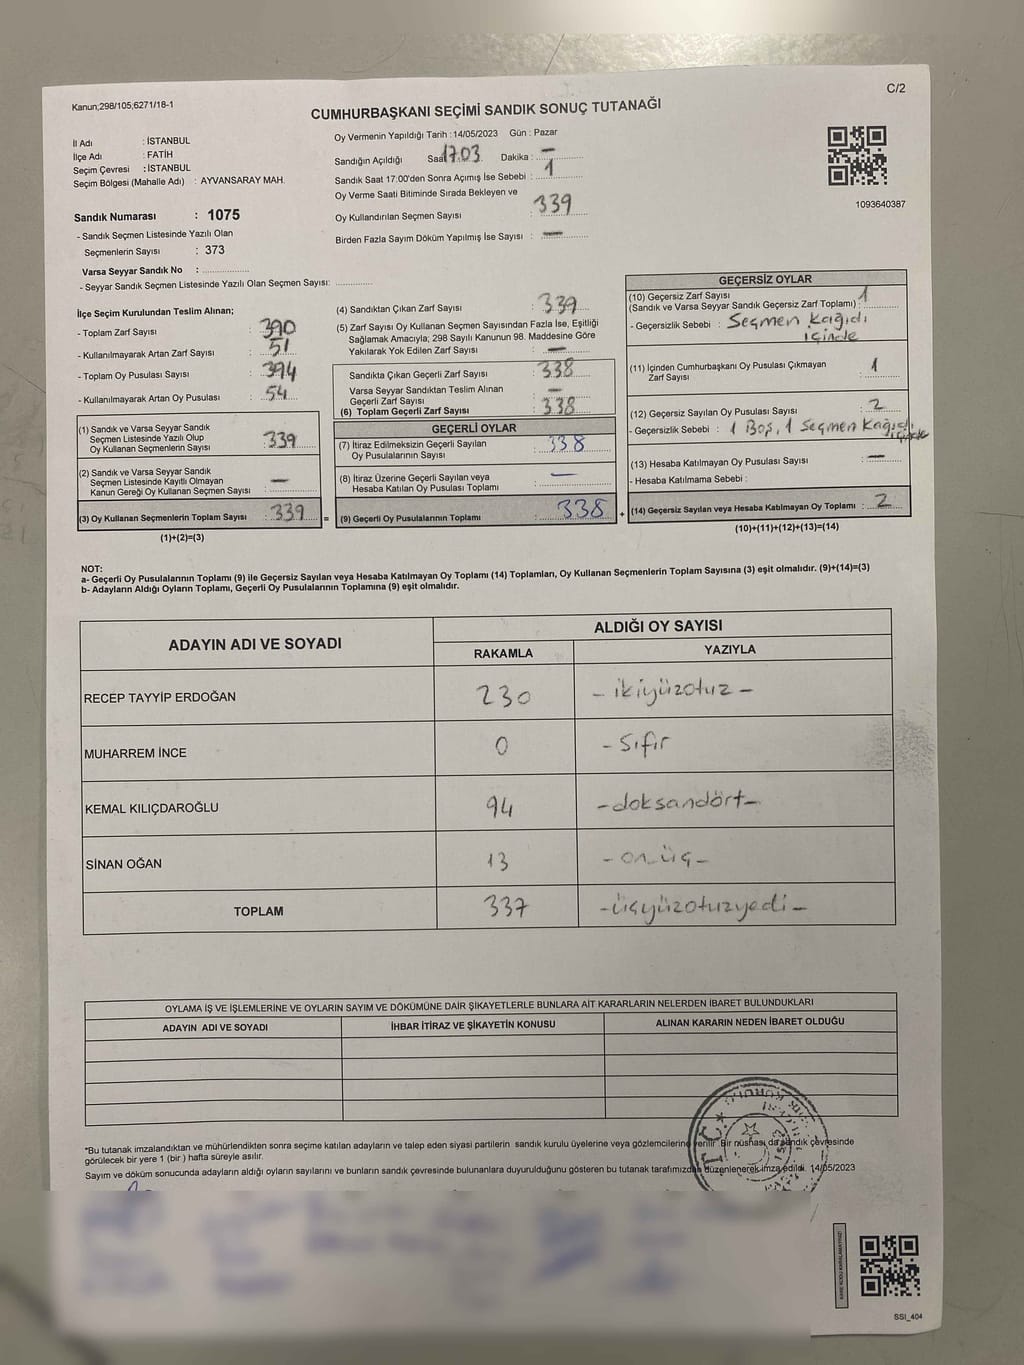 C/2
Kanun;298/105;6271/18-1
CUMHURBAŞKANI SEÇİMİ SANDIK SONUÇ TUTANAĞI
İl Adı : İSTANBUL
İlçe Adı : FATİH
Seçim Çevresi : İSTANBUL
Seçim Bölgesi (Mahalle Adı) : AYVANSARAY MAH.
Sandık Numarası : 1075
- Sandık Seçmen Listesinde Yazılı Olan
Seçmenlerin Sayısı : 373
Varsa Seyyar Sandık No :
- Seyyar Sandık Seçmen Listesinde Yazılı Olan Seçmen Sayısı:
Oy Vermenin Yapıldığı Tarih : 14/05/2023 Gün : Pazar
Sandığın Açıldığı Saat 17.03 Dakika : —
Sandık Saat 17:00'den Sonra Açımış İse Sebebi : 1
Oy Verme Saati Bitiminde Sırada Bekleyen ve
Oy Kullandırılan Seçmen Sayısı : 339
Birden Fazla Sayım Döküm Yapılmış İse Sayısı : —
1093640387
İlçe Seçim Kurulundan Teslim Alınan;
- Toplam Zarf Sayısı : 390
- Kullanılmayarak Artan Zarf Sayısı : 51
- Toplam Oy Pusulası Sayısı : 394
- Kullanılmayarak Artan Oy Pusulası : 54
(1) Sandık ve Varsa Seyyar Sandık
Seçmen Listesinde Yazılı Olup
Oy Kullanan Seçmenlerin Sayısı : 339
(2) Sandık ve Varsa Seyyar Sandık
Seçmen Listesinde Kayıtlı Olmayan
Kanun Gereği Oy Kullanan Seçmen Sayısı : —
(3) Oy Kullanan Seçmenlerin Toplam Sayısı : 339 =
(1)+(2)=(3)
(4) Sandıktan Çıkan Zarf Sayısı : 339
(5) Zarf Sayısı Oy Kullanan Seçmen Sayısından Fazla İse, Eşitliği
Sağlamak Amacıyla; 298 Sayılı Kanunun 98. Maddesine Göre
Yakılarak Yok Edilen Zarf Sayısı : —
Sandıkta Çıkan Geçerli Zarf Sayısı : 338
Varsa Seyyar Sandıktan Teslim Alınan
Geçerli Zarf Sayısı : —
(6) Toplam Geçerli Zarf Sayısı : 338
GEÇERLİ OYLAR
(7) İtiraz Edilmeksizin Geçerli Sayılan
Oy Pusulalarının Sayısı : 338
(8) İtiraz Üzerine Geçerli Sayılan veya
Hesaba Katılan Oy Pusulası Toplamı : —
(9) Geçerli Oy Pusulalarının Toplamı : 338 +
GEÇERSİZ OYLAR
(10) Geçersiz Zarf Sayısı
(Sandık ve Varsa Seyyar Sandık Geçersiz Zarf Toplamı) : 1
- Geçersizlik Sebebi : Seçmen Kağıdı
içinde
(11) İçinden Cumhurbaşkanı Oy Pusulası Çıkmayan
Zarf Sayısı : 1
(12) Geçersiz Sayılan Oy Pusulası Sayısı : 2
- Geçersizlik Sebebi : 1 Boş, 1 Seçmen Kağıdı
içinde
(13) Hesaba Katılmayan Oy Pusulası Sayısı : —
- Hesaba Katılmama Sebebi :
(14) Geçersiz Sayılan veya Hesaba Katılmayan Oy Toplamı : 2
(10)+(11)+(12)+(13)=(14)
NOT:
a- Geçerli Oy Pusulalarının Toplamı (9) ile Geçersiz Sayılan veya Hesaba Katılmayan Oy Toplamı (14) Toplamları, Oy Kullanan Seçmenlerin Toplam Sayısına (3) eşit olmalıdır. (9)+(14)=(3)
b- Adayların Aldığı Oyların Toplamı, Geçerli Oy Pusulalarının Toplamına (9) eşit olmalıdır.
ADAYIN ADI VE SOYADI
ALDIĞI OY SAYISI
RAKAMLA YAZIYLA
RECEP TAYYİP ERDOĞAN 230 - ikiyüzotuz -
MUHARREM İNCE 0 - Sıfır
KEMAL KILIÇDAROĞLU 94 - doksandört -
SİNAN OĞAN 13 - on üç -
TOPLAM 337 - üçyüzotuzyedi -
OYLAMA İŞ VE İŞLEMLERİNE VE OYLARIN SAYIM VE DÖKÜMÜNE DAİR ŞİKAYETLERLE BUNLARA AİT KARARLARIN NELERDEN İBARET BULUNDUKLARI
ADAYIN ADI VE SOYADI İHBAR İTİRAZ VE ŞİKAYETİN KONUSU ALINAN KARARIN NEDEN İBARET OLDUĞU
*Bu tutanak imzalandıktan ve mühürlendikten sonra seçime katılan adayların ve talep eden siyasi partilerin sandık kurulu üyelerine veya gözlemcilerine verilir. Bir nüshası da sandık çevresinde
görülecek bir yere 1 (bir) hafta süreyle asılır.
Sayım ve döküm sonucunda adayların aldığı oyların sayılarını ve bunların sandık çevresinde bulunanlara duyurulduğunu gösteren bu tutanak tarafımızdan düzenlenerek imza edildi. 14/05/2023
T.C.
SSI_404